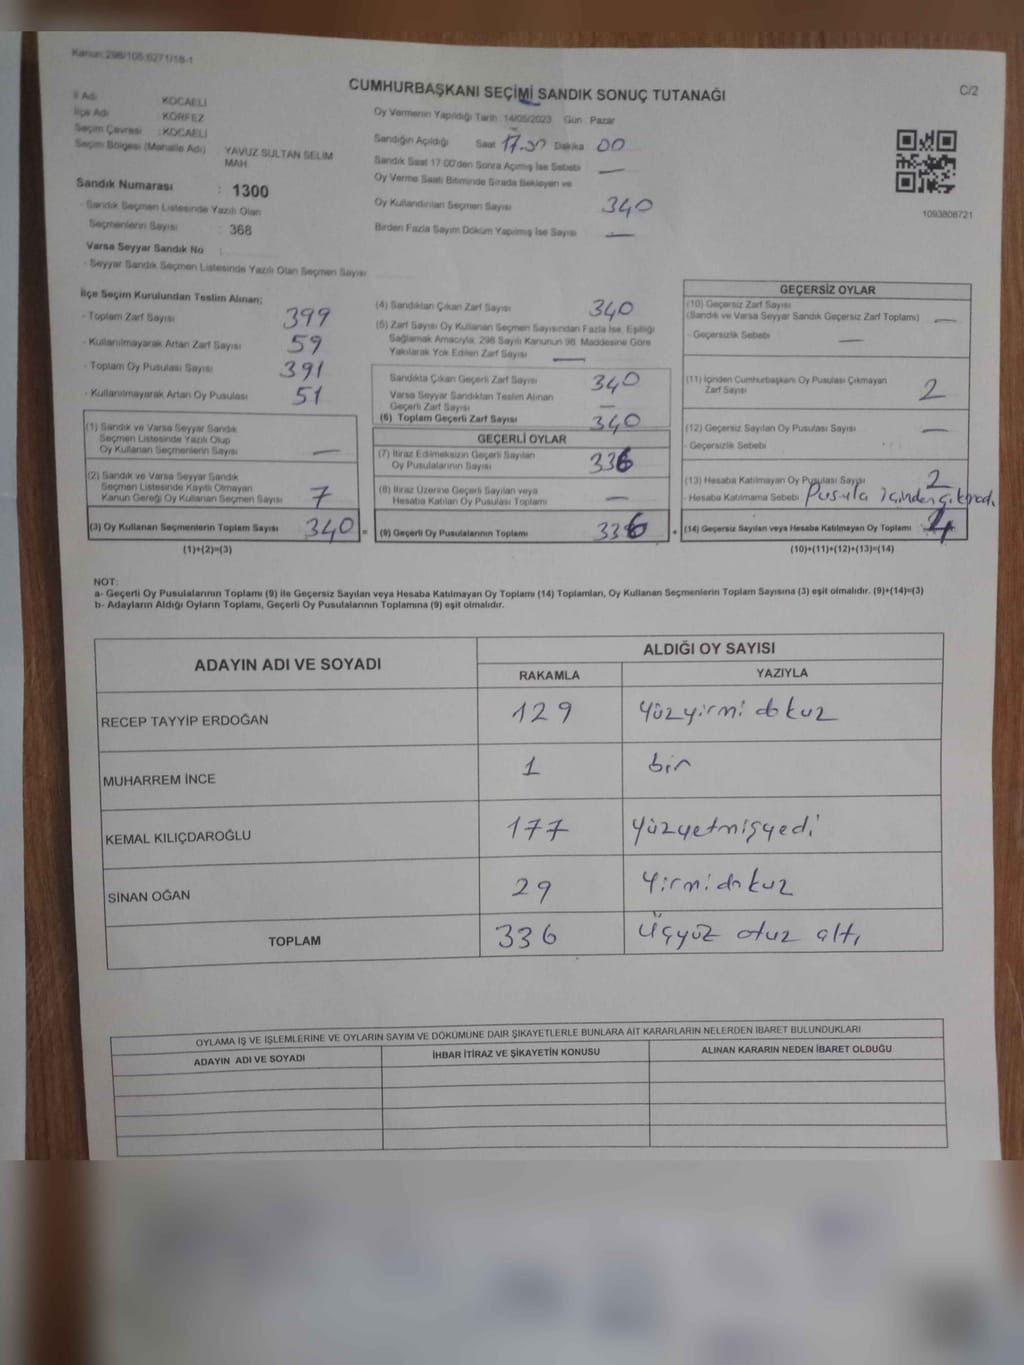 Kanun:298/105;6271/18-1
C/2
CUMHURBAŞKANI SEÇİMİ SANDIK SONUÇ TUTANAĞI
İl Adı KOCAELİ
İlçe Adı KÖRFEZ
Seçim Çevresi : KOCAELİ
Seçim Bölgesi (Mahalle Adı) YAVUZ SULTAN SELİM MAH.
Sandık Numarası : 1300
- Sandık Seçmen Listesinde Yazılı Olan
Seçmenlerin Sayısı : 368
Varsa Seyyar Sandık No :
- Seyyar Sandık Seçmen Listesinde Yazılı Olan Seçmen Sayısı
Oy Vermenin Yapıldığı Tarih : 14/05/2023 Gün : Pazar
Sandığın Açıldığı Saat 17.30 Dakika 00
Sandık Saat 17:00'den Sonra Açımış İse Sebebi —
Oy Verme Saati Bitiminde Sırada Bekleyen ve
Oy Kullandırılan Seçmen Sayısı 340
Birden Fazla Sayım Döküm Yapılmış İse Sayısı —
1093808721
İlçe Seçim Kurulundan Teslim Alınan;
- Toplam Zarf Sayısı 399
- Kullanılmayarak Artan Zarf Sayısı 59
- Toplam Oy Pusulası Sayısı 391
- Kullanılmayarak Artan Oy Pusulası 51
(1) Sandık ve Varsa Seyyar Sandık
Seçmen Listesinde Yazılı Olup
Oy Kullanan Seçmenlerin Sayısı —
(2) Sandık ve Varsa Seyyar Sandık
Seçmen Listesinde Kayıtlı Olmayan
Kanun Gereği Oy Kullanan Seçmen Sayısı 7
(3) Oy Kullanan Seçmenlerin Toplam Sayısı 340 =
(1)+(2)=(3)
(4) Sandıktan Çıkan Zarf Sayısı 340
(5) Zarf Sayısı Oy Kullanan Seçmen Sayısından Fazla İse, Eşitliği
Sağlamak Amacıyla, 298 Sayılı Kanunun 98. Maddesine Göre
Yakılarak Yok Edilen Zarf Sayısı —
Sandıkta Çıkan Geçerli Zarf Sayısı 340
Varsa Seyyar Sandıktan Teslim Alınan
Geçerli Zarf Sayısı —
(6) Toplam Geçerli Zarf Sayısı 340
GEÇERLİ OYLAR
(7) İtiraz Edilmeksizin Geçerli Sayılan
Oy Pusulalarının Sayısı 336
(8) İtiraz Üzerine Geçerli Sayılan veya
Hesaba Katılan Oy Pusulası Toplamı —
(9) Geçerli Oy Pusulalarının Toplamı 336 +
GEÇERSİZ OYLAR
(10) Geçersiz Zarf Sayısı
(Sandık ve Varsa Seyyar Sandık Geçersiz Zarf Toplamı) —
- Geçersizlik Sebebi —
(11) İçinden Cumhurbaşkanı Oy Pusulası Çıkmayan
Zarf Sayısı 2
(12) Geçersiz Sayılan Oy Pusulası Sayısı —
- Geçersizlik Sebebi
(13) Hesaba Katılmayan Oy Pusulası Sayısı 2
- Hesaba Katılmama Sebebi Pusula içinden çıkmadı
(14) Geçersiz Sayılan veya Hesaba Katılmayan Oy Toplamı 4
(10)+(11)+(12)+(13)=(14)
NOT:
a- Geçerli Oy Pusulalarının Toplamı (9) ile Geçersiz Sayılan veya Hesaba Katılmayan Oy Toplamı (14) Toplamları, Oy Kullanan Seçmenlerin Toplam Sayısına (3) eşit olmalıdır. (9)+(14)=(3)
b- Adayların Aldığı Oyların Toplamı, Geçerli Oy Pusulalarının Toplamına (9) eşit olmalıdır.
ADAYIN ADI VE SOYADI ALDIĞI OY SAYISI
RAKAMLA YAZIYLA
RECEP TAYYİP ERDOĞAN 129 Yüzyirmi dokuz
MUHARREM İNCE 1 bir
KEMAL KILIÇDAROĞLU 177 Yüzyetmişyedi
SİNAN OĞAN 29 Yirmidokuz
TOPLAM 336 Üçyüz otuz altı
OYLAMA İŞ VE İŞLEMLERİNE VE OYLARIN SAYIM VE DÖKÜMÜNE DAİR ŞİKAYETLERLE BUNLARA AİT KARARLARIN NELERDEN İBARET BULUNDUKLARI
ADAYIN ADI VE SOYADI İHBAR İTİRAZ VE ŞİKAYETİN KONUSU ALINAN KARARIN NEDEN İBARET OLDUĞU